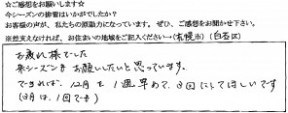 ☆ご感想をお願いします☆
今シーズンの排雪はいかがでしたか？
お客様の声が、私たちの原動力になっています。ぜひ、ご感想をお聞かせ下さい。
※差支えなければ、お住まいの地域をご記入ください→(札幌市)(白石区)
お疲れ様でした
来シーズンもお願いしたいと思っています。
できれば、12月を1週早めて、3回にしてほしいです
(3月は、1回でも)